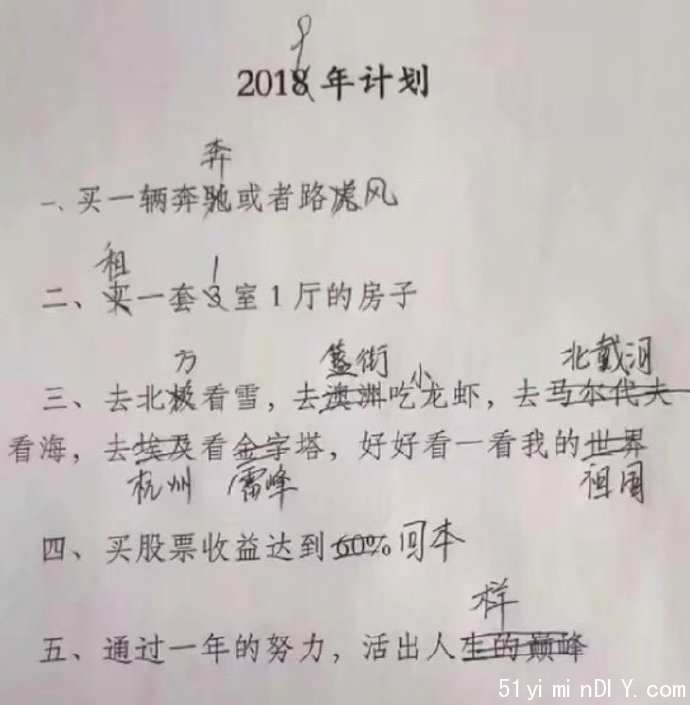 9
2018年计划
奔
一、买一辆奔驰或者路虎风
租 1
二、买一套3室1厅的房子
方 簋街 小 北戴河
三、去北极看雪，去澳洲吃龙虾，去马尔代夫
看海，去埃及看金字塔，好好看一看我的世界
杭州 雷峰 祖国
四、买股票收益达到60%回本
样
五、通过一年的努力，活出人生的巅峰
51yiminDIY.com